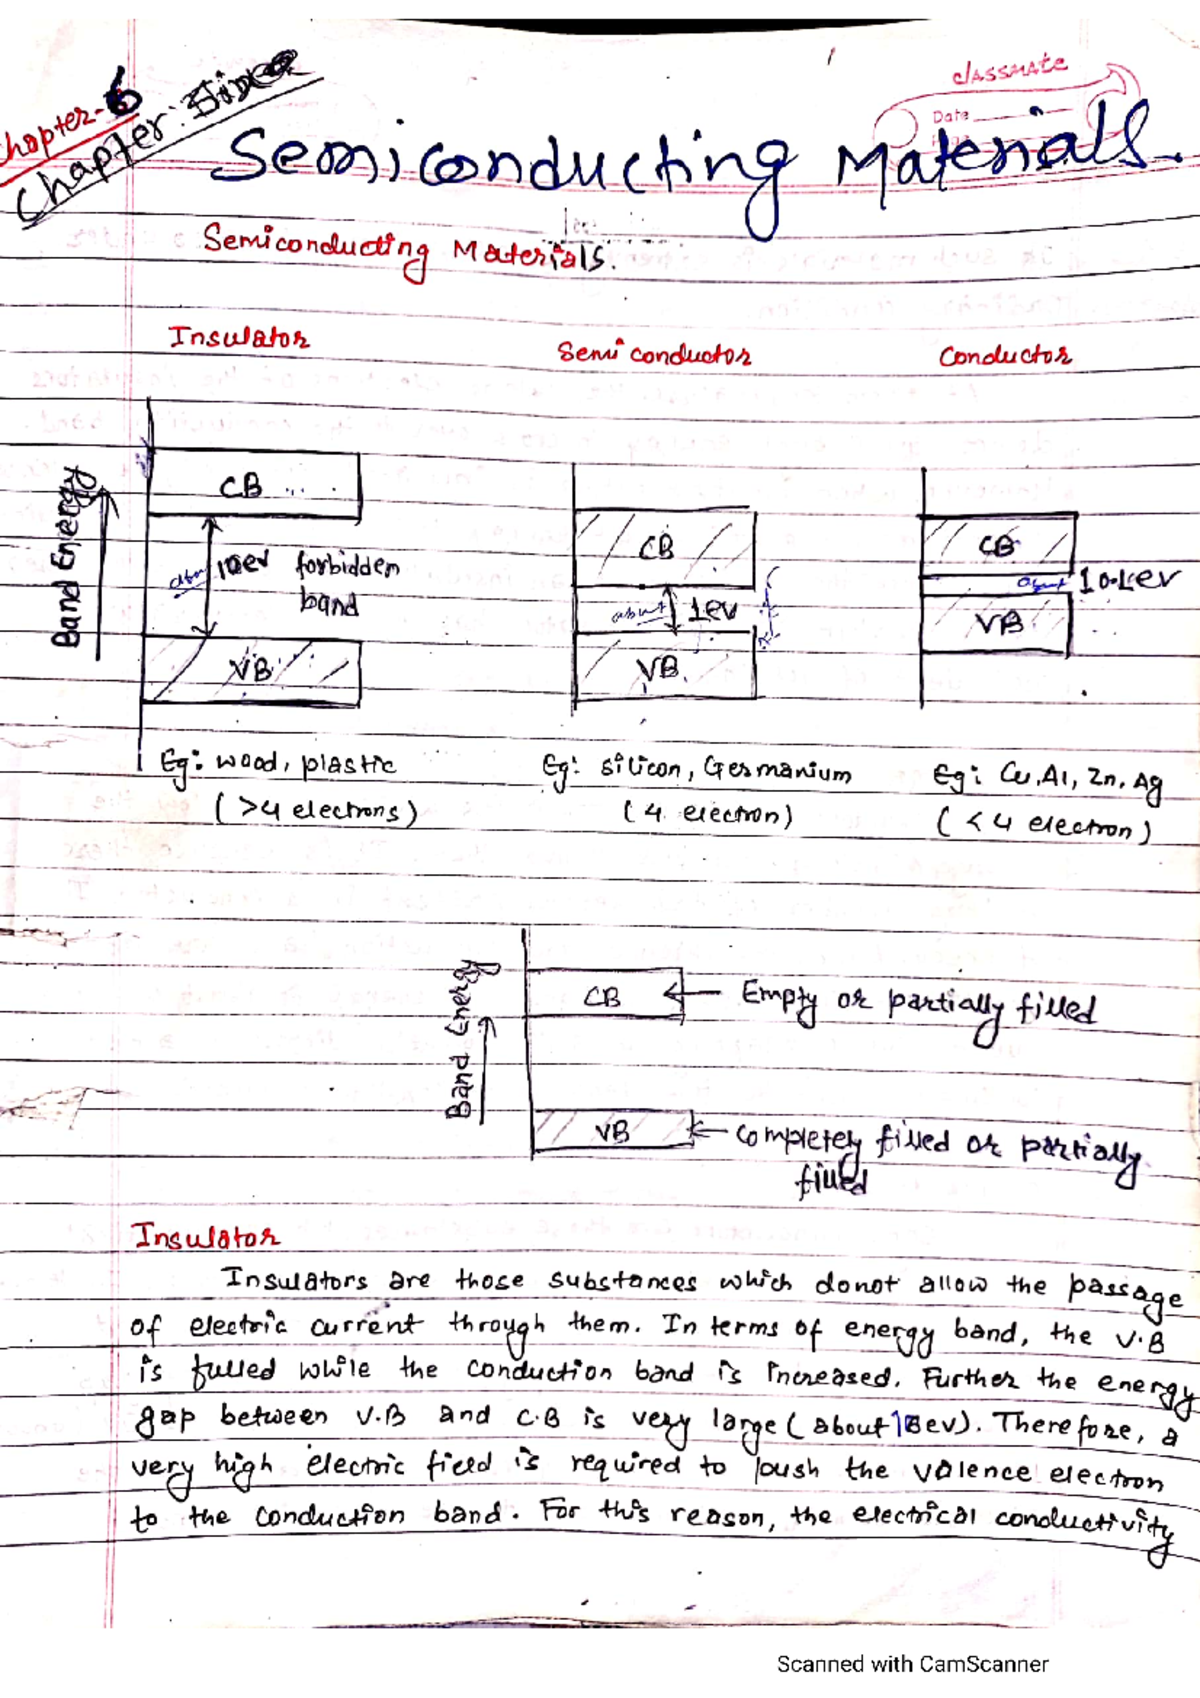 Chapter-6
Chapter: Six
classmate
Date
Page
Semiconducting Materials.
Semiconducting Materials.
Insulator
Semiconductor
Conductor
Band Energy
CB
about 10ev forbidden
band
VB
CB
about 1ev
VB
CB
about 0.1ev
VB
Eg: wood, plastic
(>4 electrons)
Eg: silicon, Germanium
(4 electron)
Eg: Cu, Al, Zn, Ag
(<4 electron)
Band Energy
CB ← Empty or partially filled
VB ← completely filled or partially
filled
Insulator
Insulators are those substances which donot allow the passage
of electric current through them. In terms of energy band, the V.B
is fulled while the conduction band is increased. Further the energy
gap between V.B and C.B is very large (about ev). Therefore, a
very high electric field is required to push the valence electron
to the conduction band. For this reason, the electrical conductivity
Scanned with CamScanner